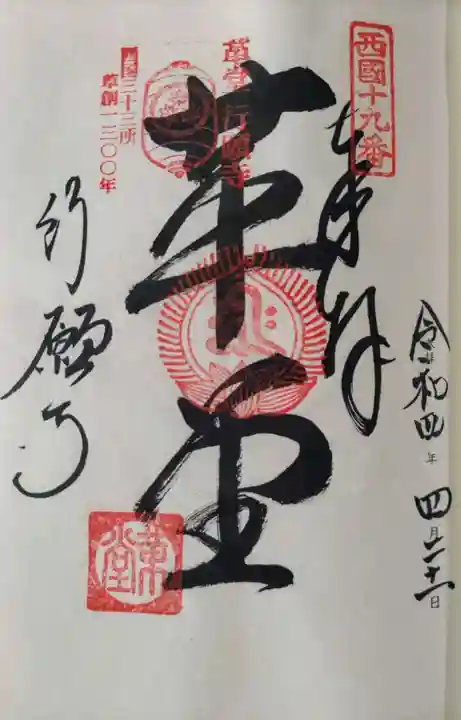 西國十九番
奉拝
令和四年四月二十一日
革堂行願寺
革堂
西国三十三所
草創一三〇〇年
行願寺
革堂